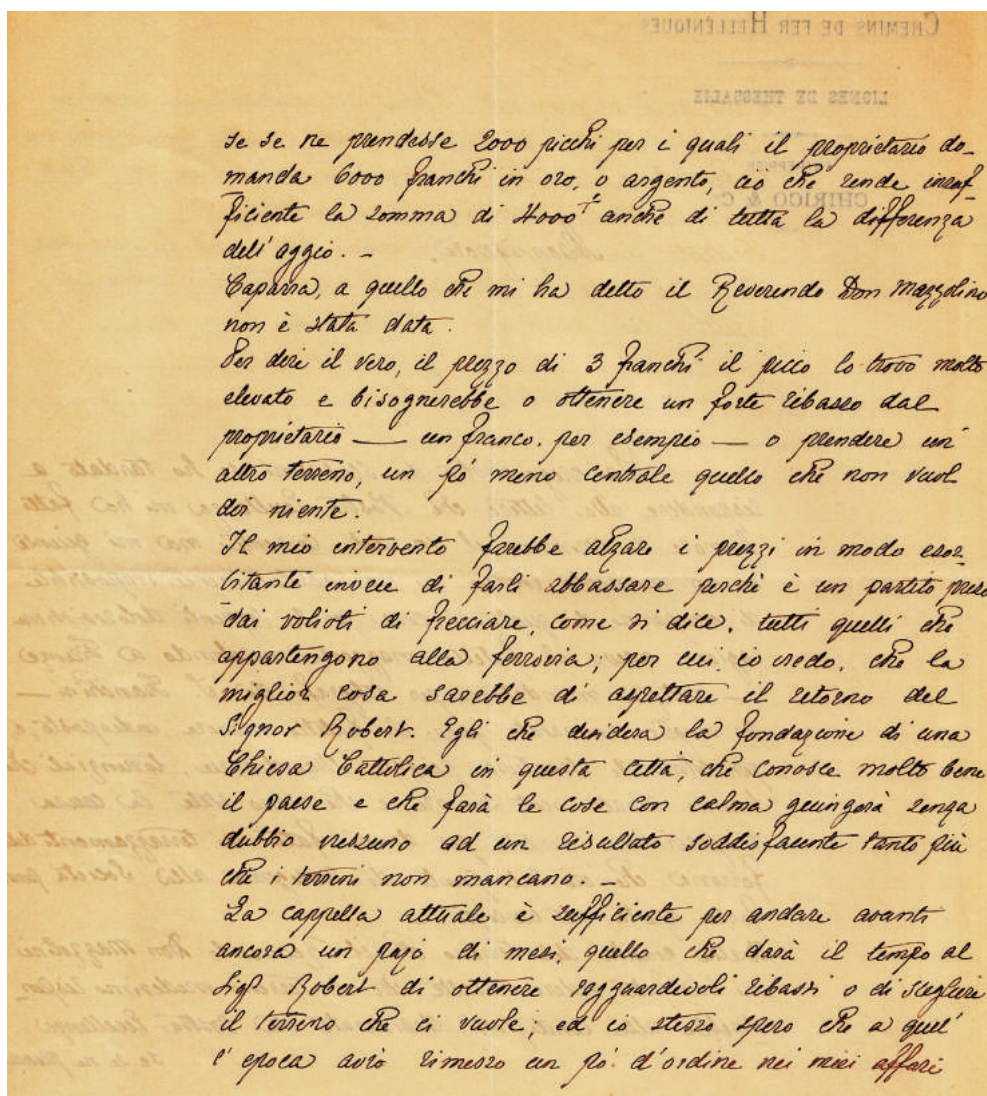 CHEMINS DE FER HELLÉNIQUES
LIGNES DE THESSALIE
CHIRICO & C
se se ne prendesse 2000 picchi per i quali il proprietario do_
manda 6000 franchi in oro, o argento, ciò che rende insuf_
ficiente la somma di 4000 anche di tutta la differenza
dell'aggio. _
Caparra, a quello che mi ha detto il Reverendo Don Mazzolino
non è stata data.
Per dire il vero, il prezzo di 3 franchi il picco lo trovo molto
elevato e bisognerebbe o ottenere un forte ribasso dal
proprietario — un franco. per esempio — o prendere un'
altro terreno, un pò meno centrale quello che non vuol
dir niente.
Il mio intervento farebbe alzare i prezzi in modo esor_
bitante invece di farli abbassare perchè è un partito preso
dai volioti di frecciare, come si dice, tutti quelli che
appartengono alla ferrovia; per cui, io credo, che la
miglior cosa sarebbe di aspettare il ritorno del
Signor Robert. Egli che desidera la fondazione di una
Chiesa Cattolica in questa città, che conosce molto bene
il paese e che farà le cose con calma giungerà senza
dubbio nessuno ad un risultato soddisfacente tanto più
che i terreni non mancano. _
La cappella attuale è sufficiente per andare avanti
ancora un pajo di mesi, quello che darà il tempo al
Sigr Robert di ottenere ragguardevoli ribassi o di scegliere
il terreno che ci vuole; ed io stesso spero che a quel
l'epoca avrò rimesso un pò d'ordine nei miei affari